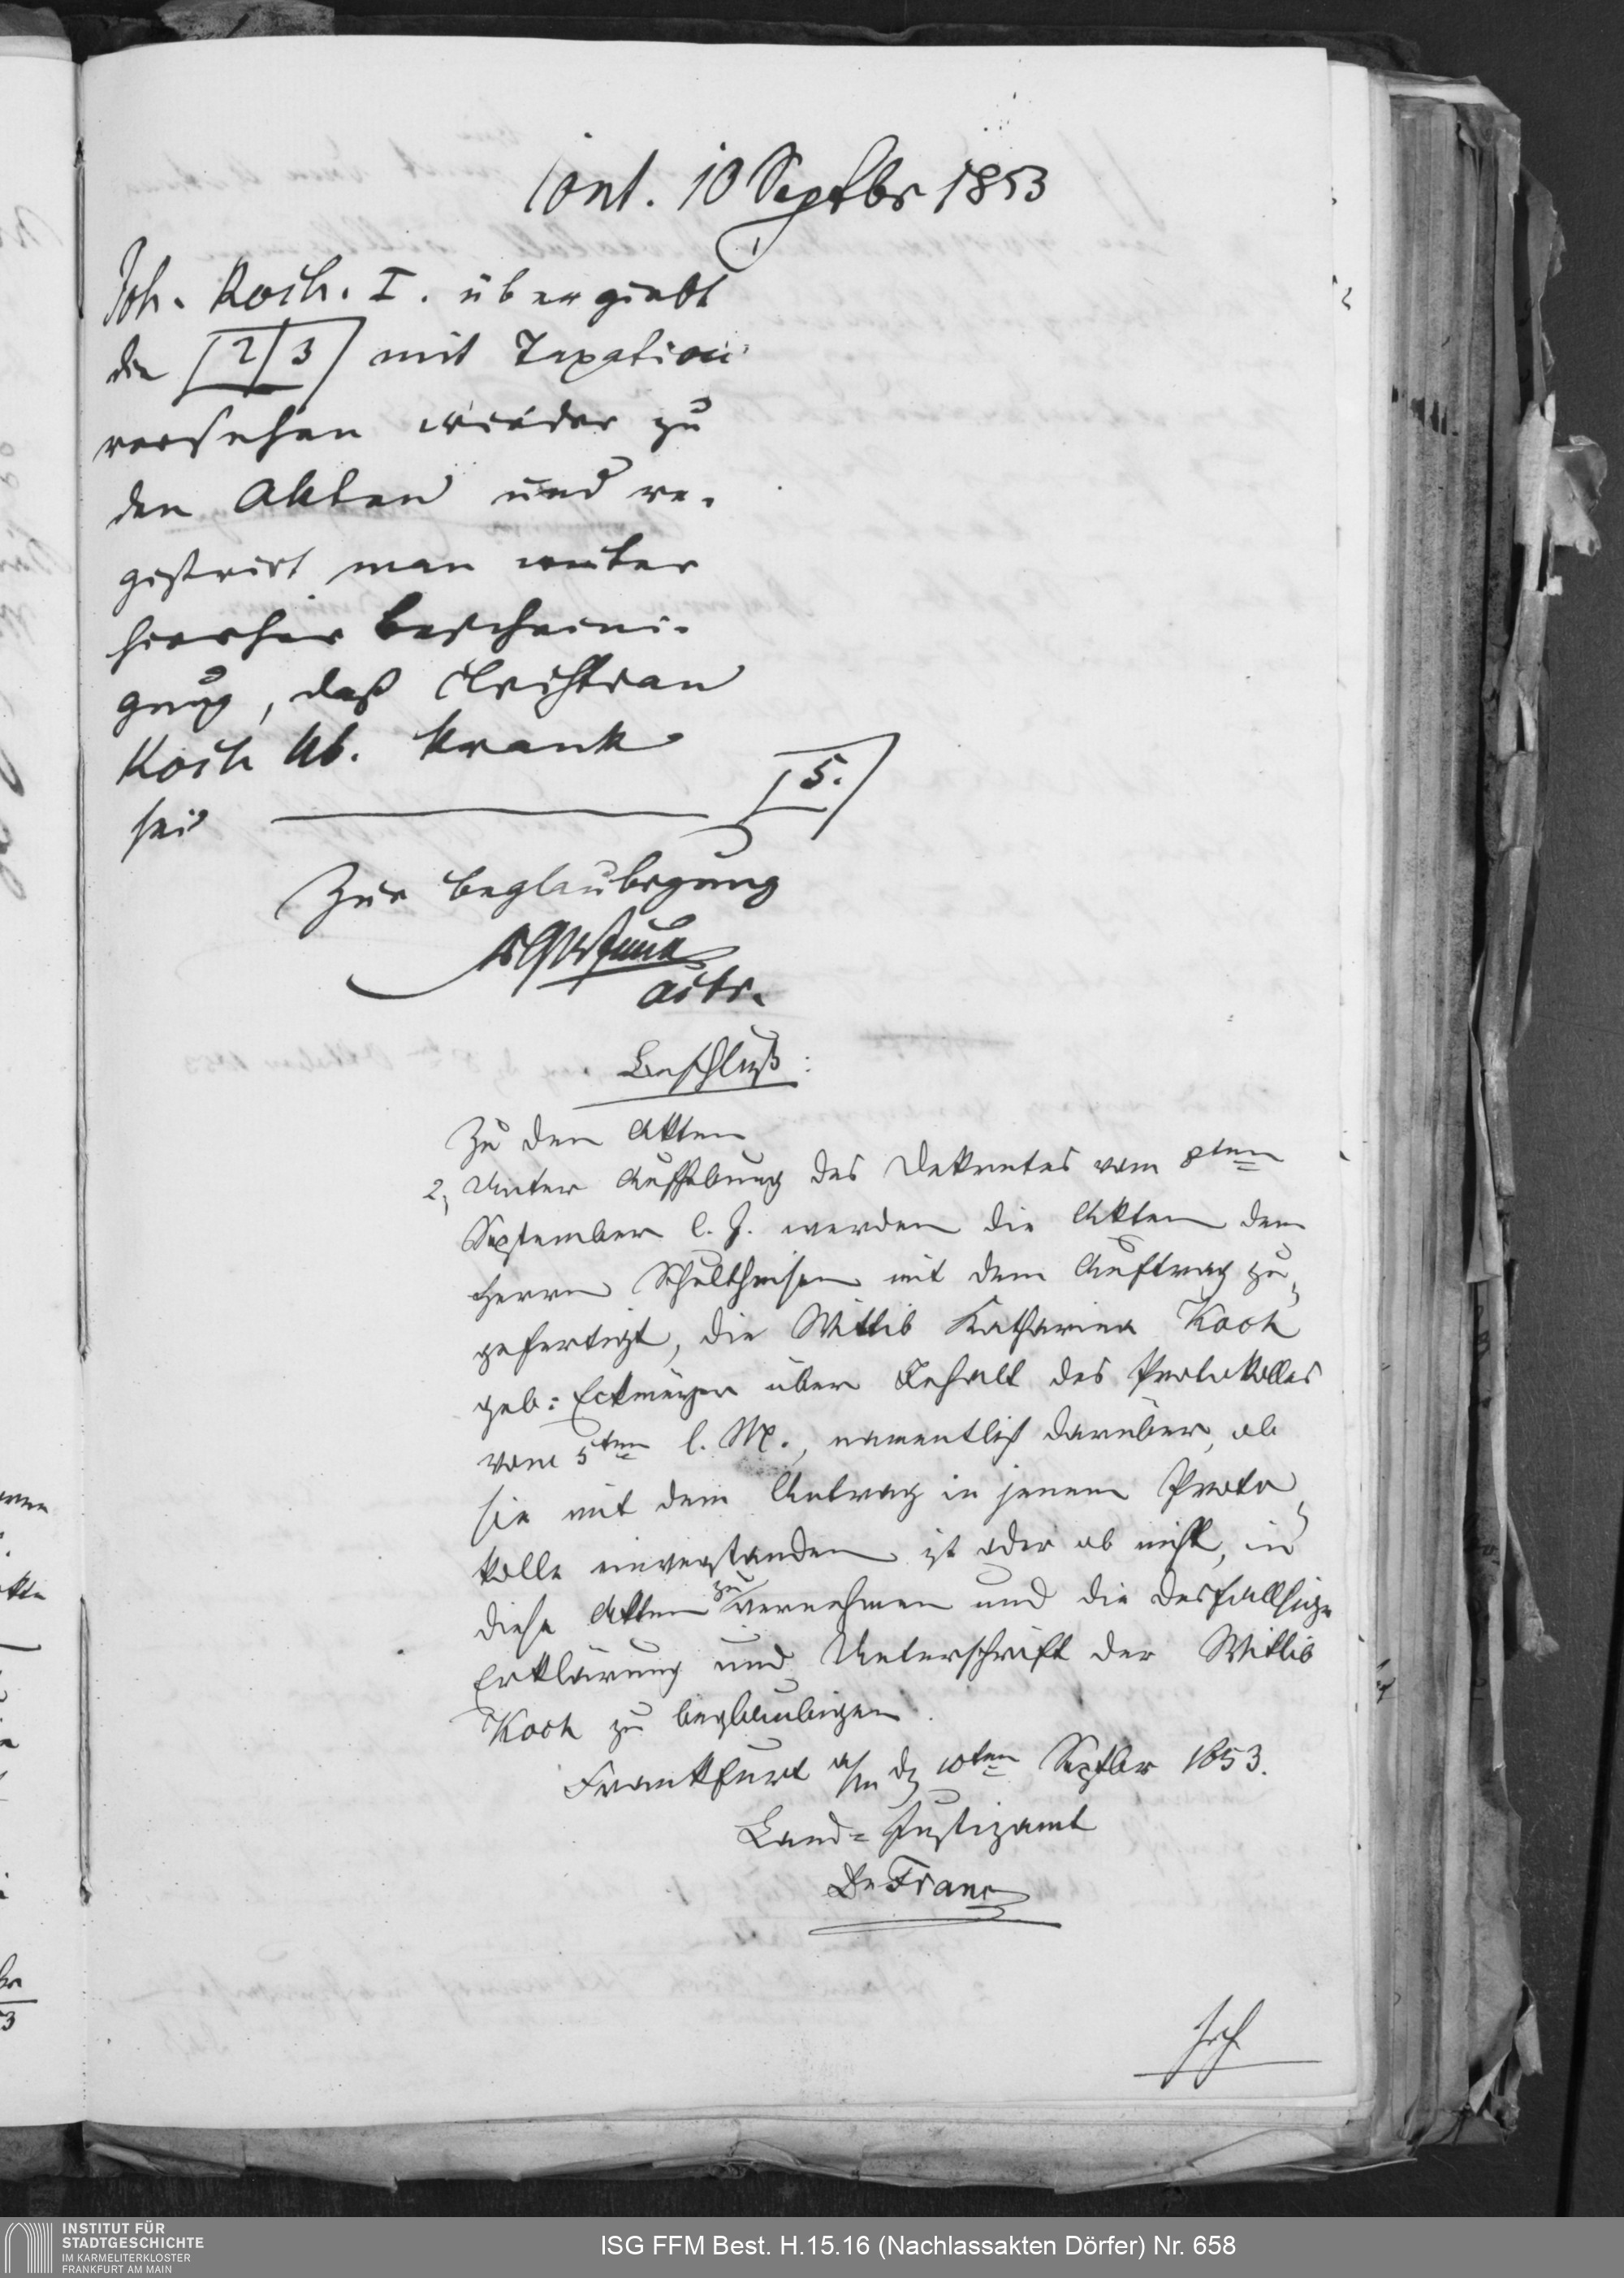 Cont. 10 Septbr 1853
Joh. Koch. I. übergiebt
die [2] [3] mit Taxation
versehen wieder zu
den Akten und re-
gistrirt man unter
hierher Bescheini-
gung, daß Christian
Koch krank
sei [5.]
Zur Beglaubigung
actr.
Beschluß:
Zu den Akten
2, Unter Aufhebung des Dekretes vom 8ten
September l. J. werden die Akten dem
Herrn Schultheisen mit dem Auftrag zu-
gefertigt, die Wittib Katharina Koch
geb: Eckmeyer über Inhalt des Protokolles
vom 5ten l. M., namentlich darüber, ob
sie mit dem Antrag in jenem Proto-
kolle einverstanden ist oder ob nicht, in
diese Akten zu vernehmen und die desfallsige
Erklärung und Unterschrift der Wittib
Koch zu beglaubigen.
Frankfurt a/m d. 10ten Septbr 1853.
Land-Justizamt
Dr Franc
INSTITUT FÜR
STADTGESCHICHTE
IM KARMELITERKLOSTER
FRANKFURT AM MAIN
ISG FFM Best. H.15.16 (Nachlassakten Dörfer) Nr. 658